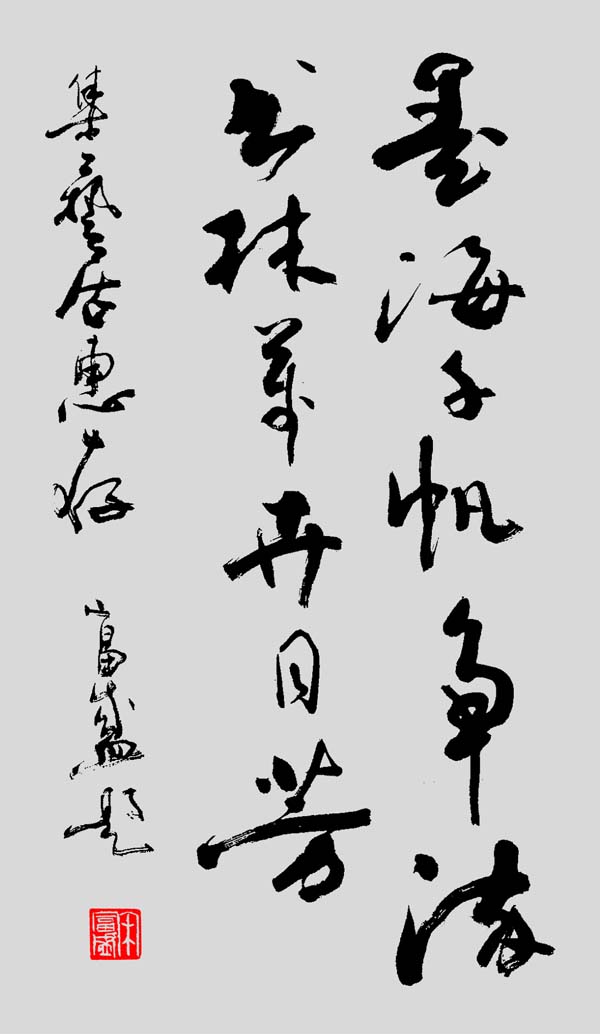 墨海千帆争流
书林萬卉同芳
集藝居惠存 富盛题